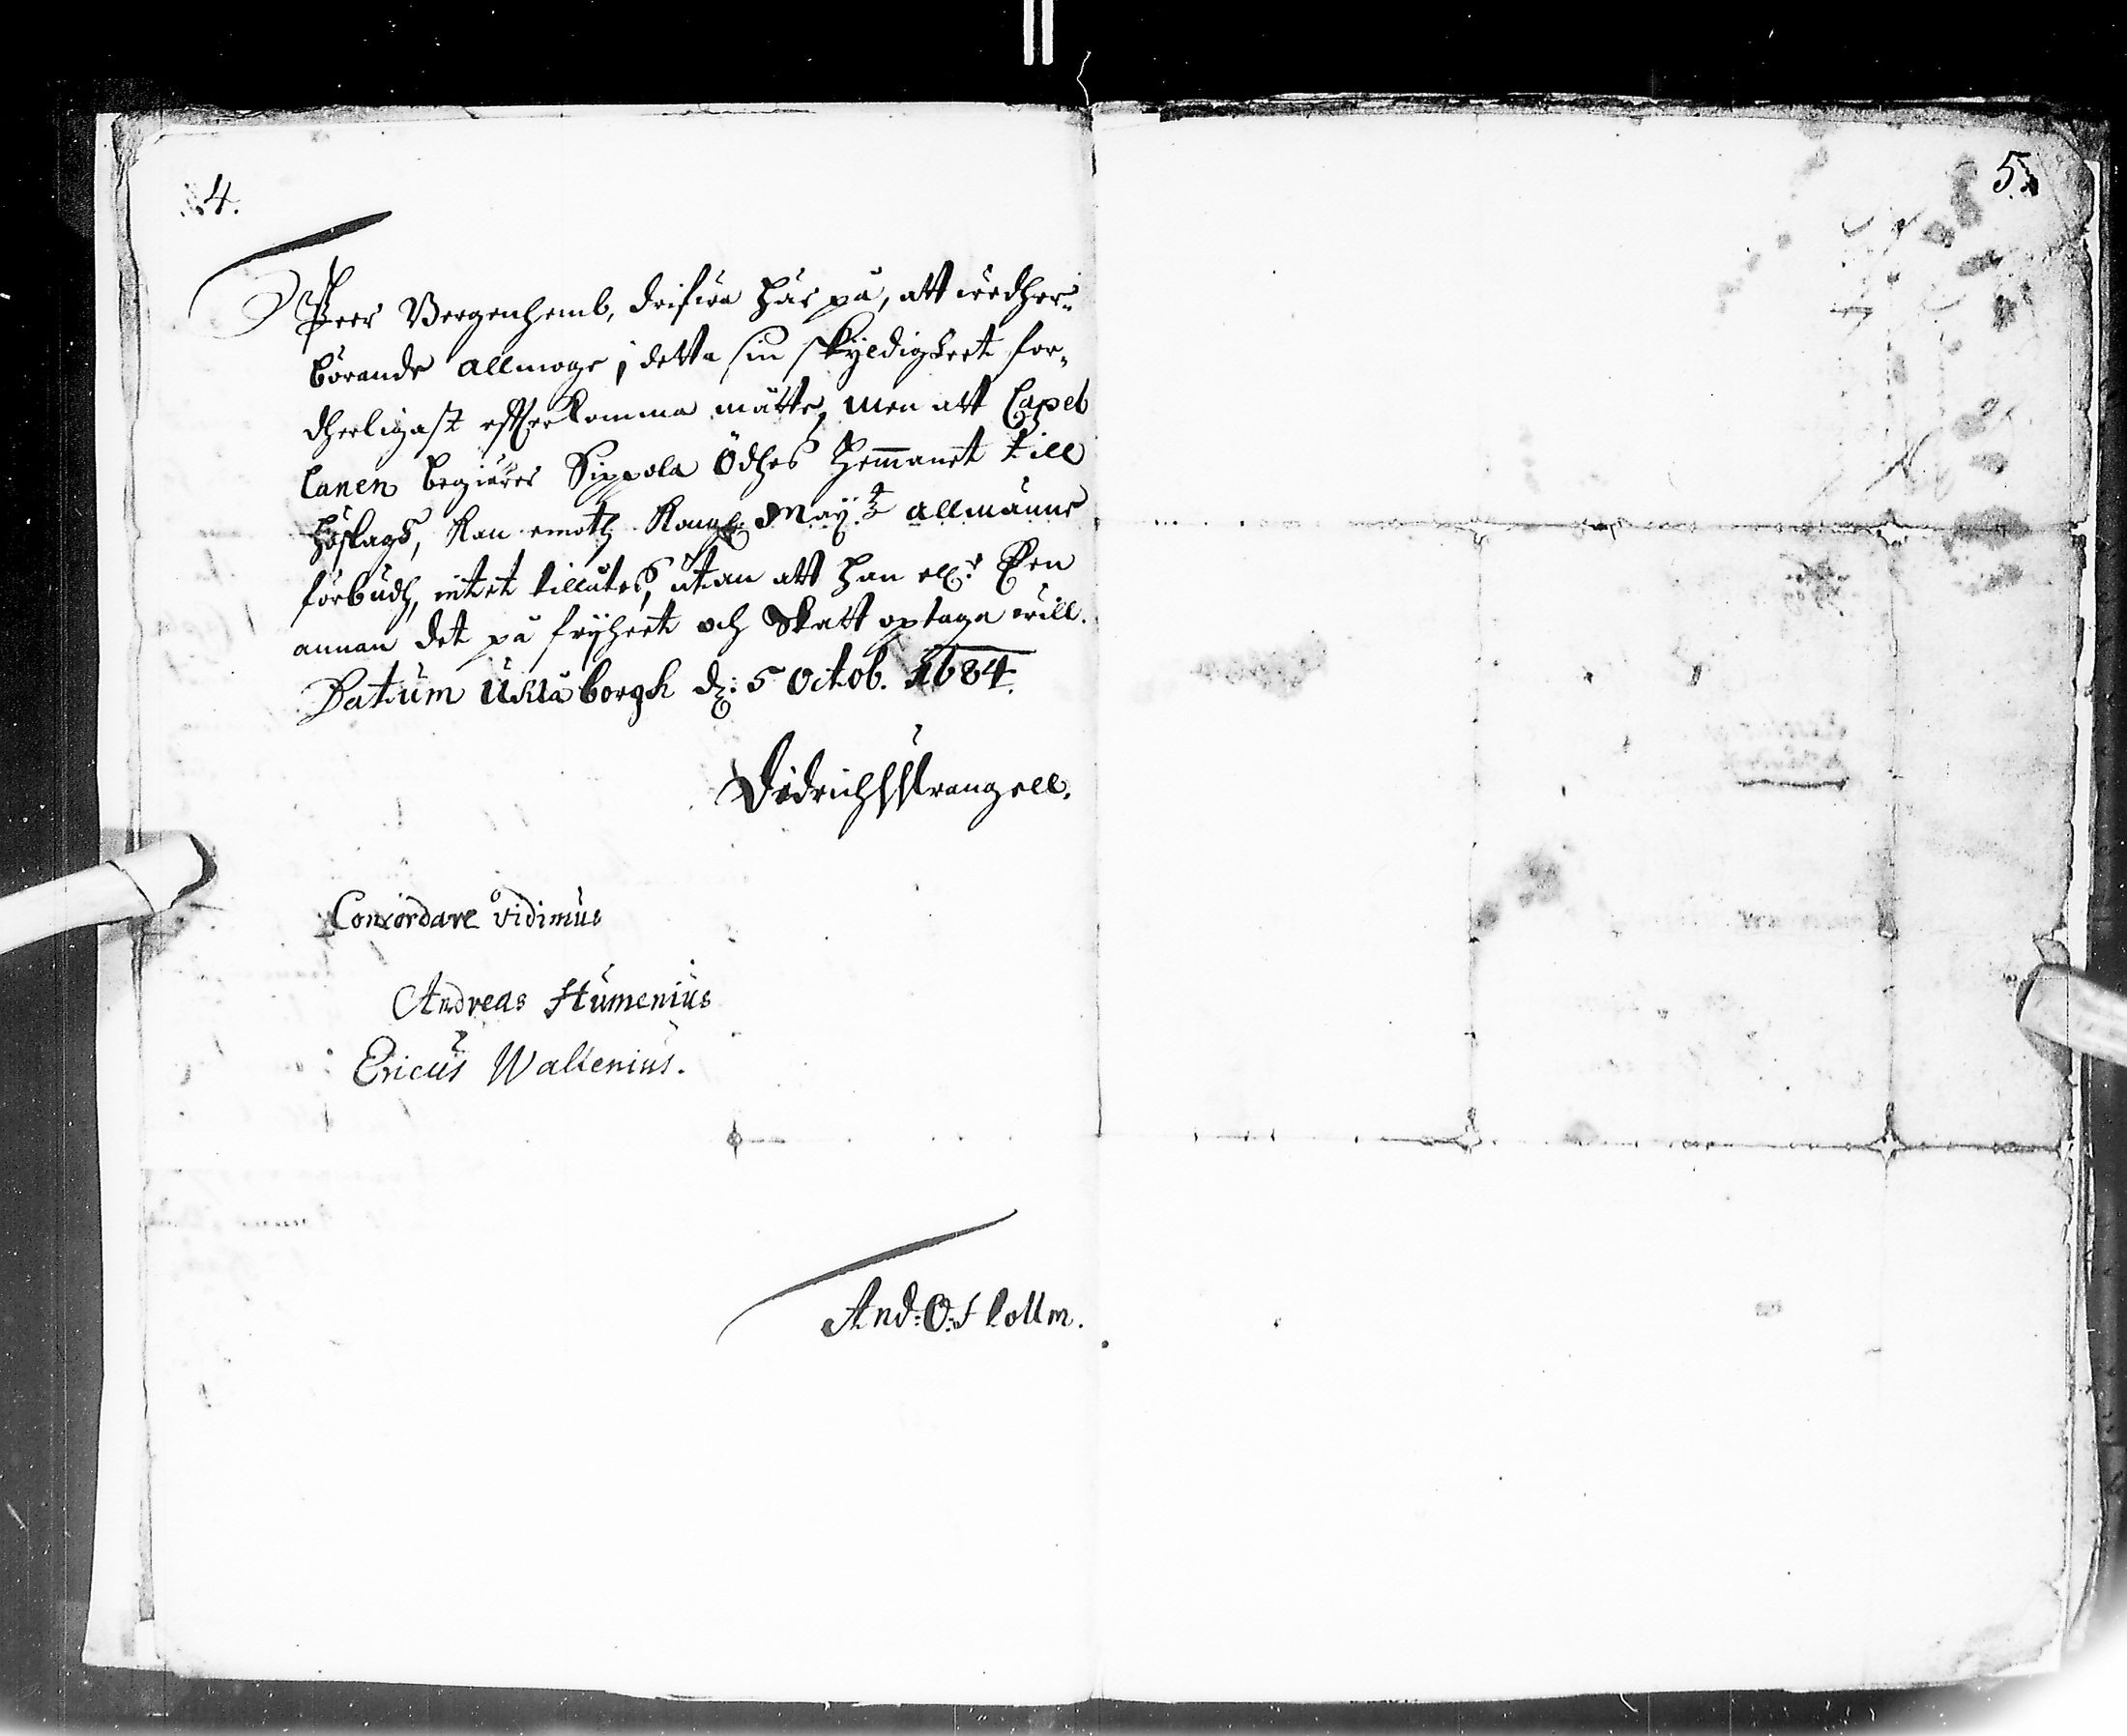 4.
Peer Bergenhemb, drifwa här på, att wedher-
börande allmoge i detta sin skyldigheet for-
dherligast effterkomma måtte, men att Capel
lanen begiärer Sippola Ödhes hemmanet till
Höslagh, kan emoth Kongl. May:tz allmänne
förbudh, intet tillåtes, utan att han ell:r Een
annan det på frijheet och Skatt optaga will.
Datum Uhlåborgh d: 5 Octob. 1684.
Didrich Wrangell.
Concordare vidimus
Andreas Humenius
Ericus Wallenius.
And: O:
5.